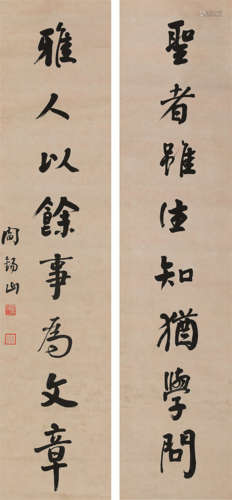 聖者雖生知猶學問
雅人以餘事為文章
閻錫山